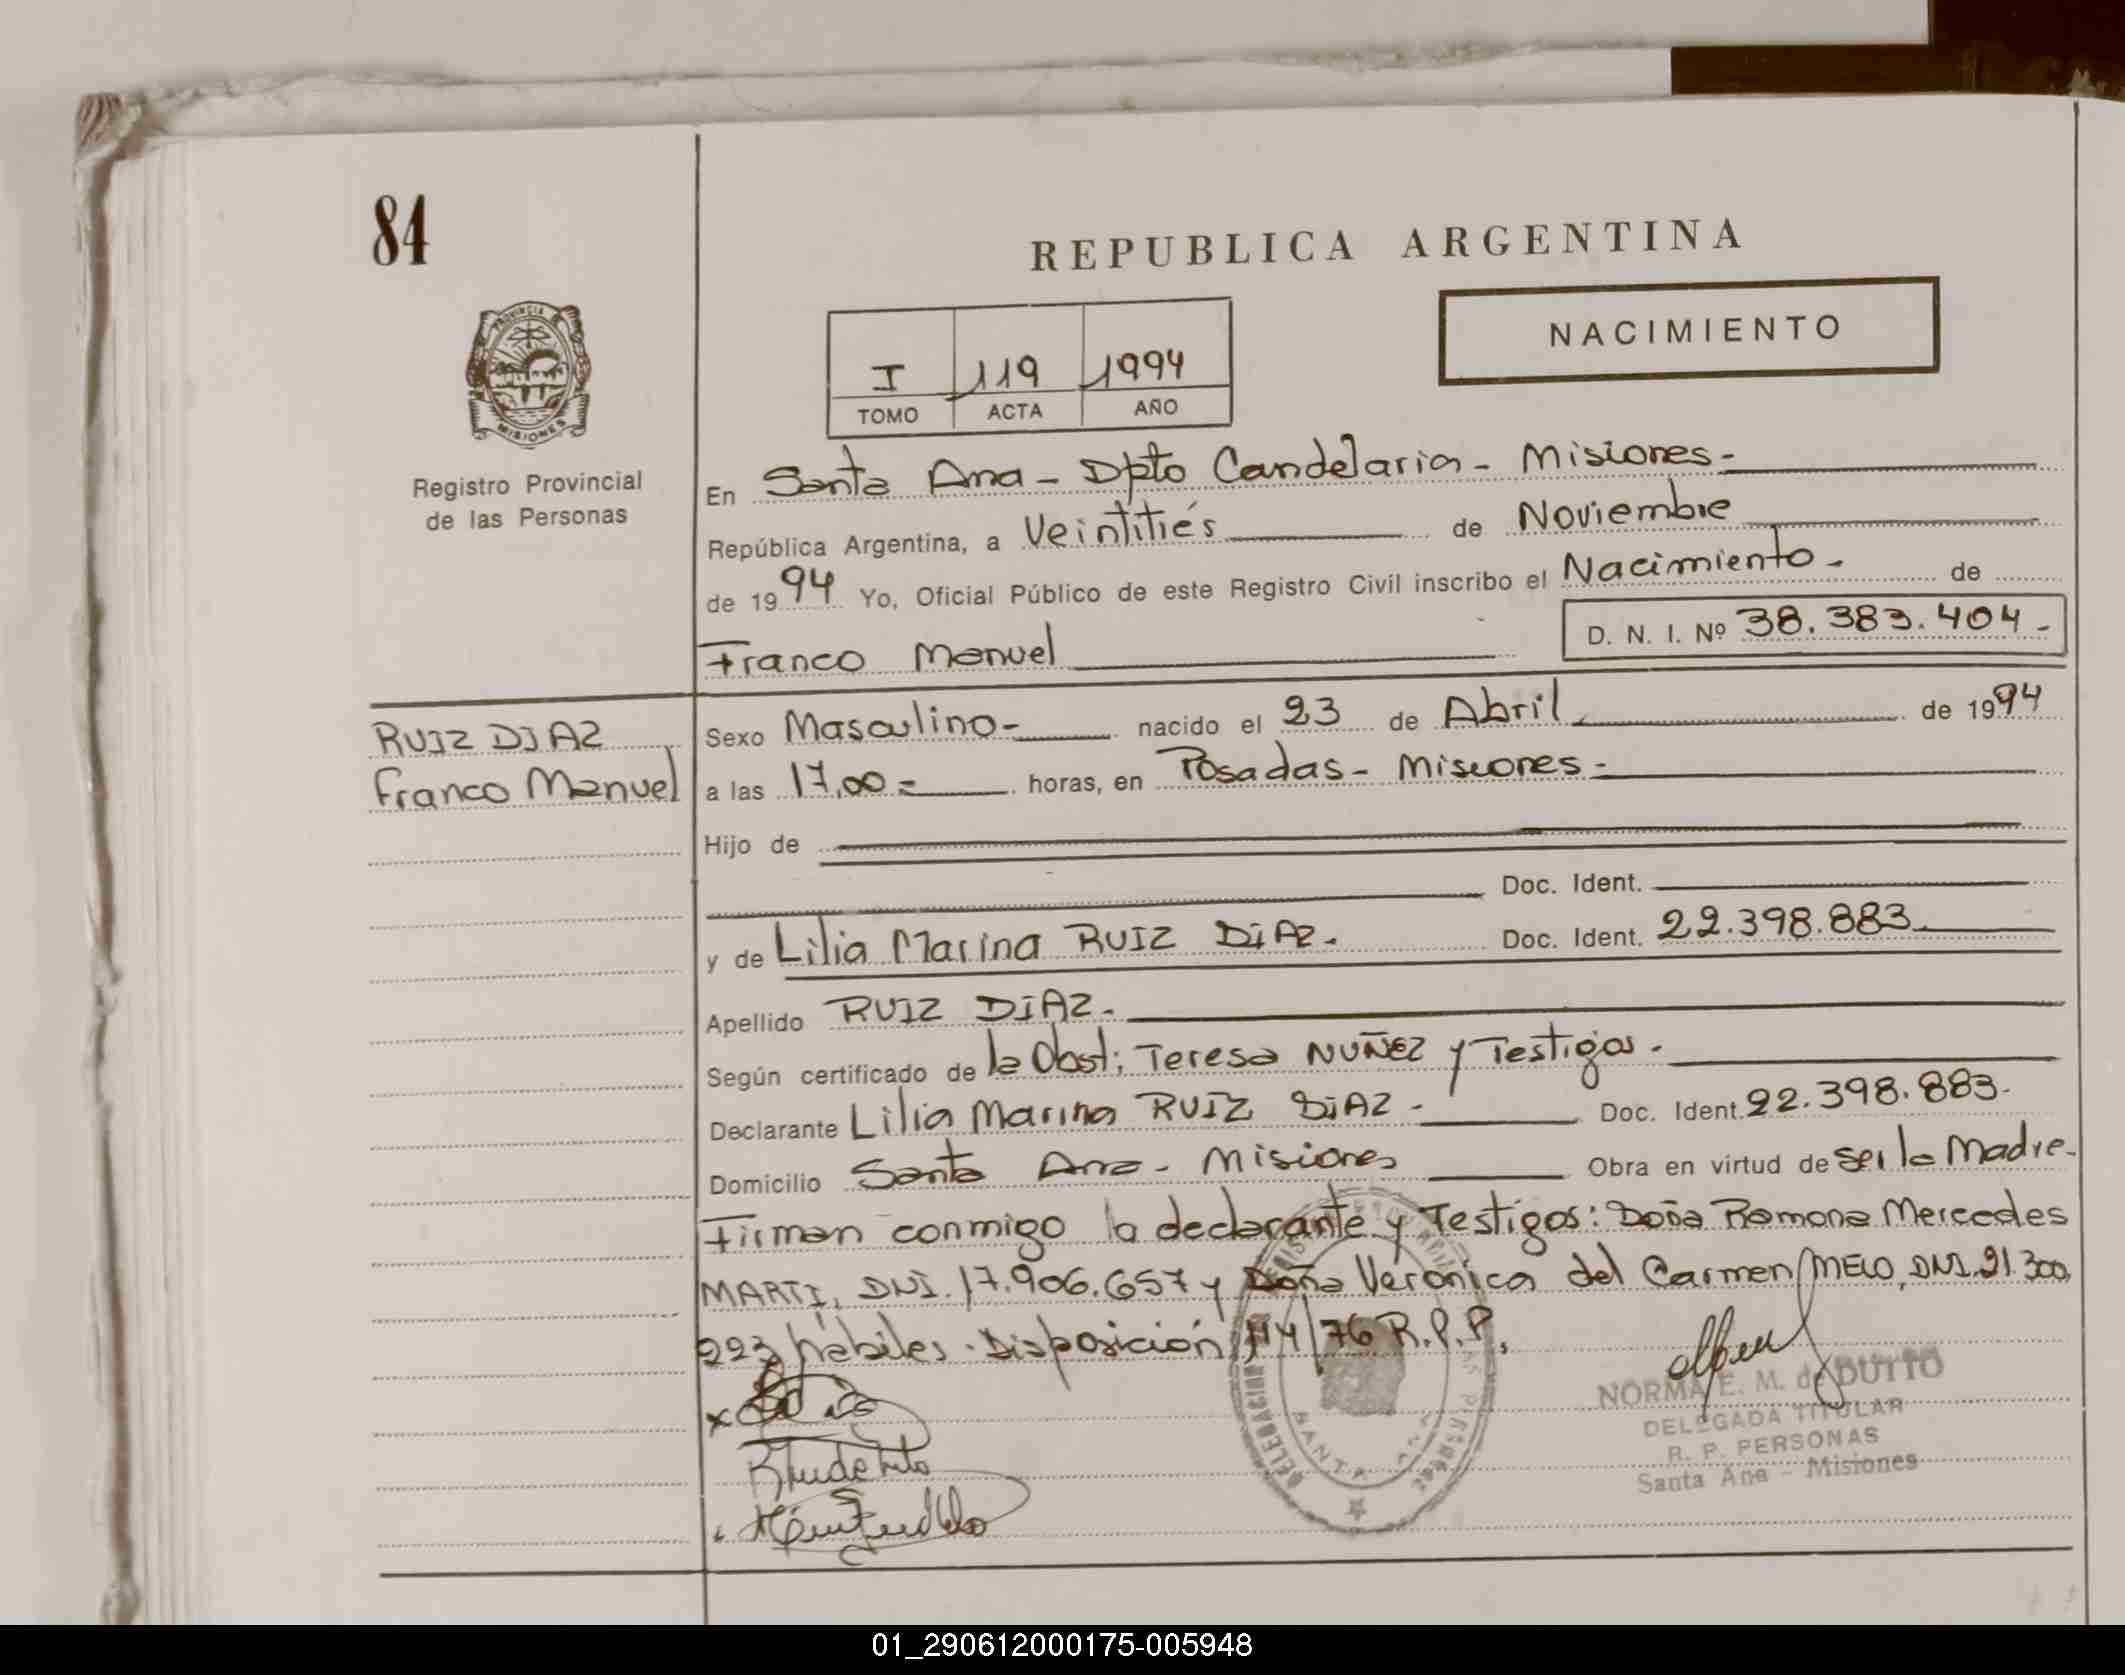 84
REPUBLICA ARGENTINA
NACIMIENTO
I 119 1994
TOMO ACTA AÑO
PROVINCIA DE
MISIONES
Registro Provincial
de las Personas
En Santa Ana - Dpto Candelaria - Misiones -
República Argentina, a Veintitrés de Noviembre
de 1994 Yo, Oficial Público de este Registro Civil inscribo el Nacimiento - de
Franco Manuel D. N. I. Nº 38.383.404 -
RUIZ DIAZ
Franco Manuel
Sexo Masculino - nacido el 23 de Abril de 1994
a las 17,00 = horas, en Posadas - Misiones -
Hijo de
Doc. Ident.
y de Lilia Marina RUIZ DiAZ. Doc. Ident. 22.398.883
Apellido RUIZ DiAZ.
Según certificado de la Obst; Teresa NUÑEZ y Testigos.
Declarante Lilia Marina RUIZ DiAZ - Doc. Ident. 22.398.883.
Domicilio Santa Ana - Misiones Obra en virtud de ser la Madre -
Firman conmigo la declarante y Testigos: Doña Ramona Mercedes
MARTI, DNI. 17.906.657 y Doña Verónica del Carmen MELO, DNI. 21.300.
223 hábiles. Disposición 114/76 R.P.P.
DELEGACION
SANTA ANA
NORMA E. M. de DUTTO
DELEGADA TITULAR
R. P. PERSONAS
Santa Ana - Misiones
01_290612000175-005948